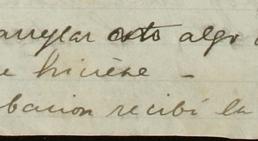 arreglar esto algo
e hiciese –
bacion recibí la